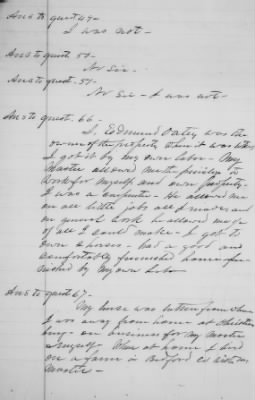 Ans to quest 49-
I was not-
Ans to quest. 50-
No Sir-
Ans to quest. 51-
No Sir - I was not-
Ans to quest. 66-
I, Edmund Oatey was the
owner of the property when it was taken
I got it by my own labor - My
Master allowed me the privilege to
work for myself and own property-
I was a carpenter - He allowed me
on all little jobs all I made and
on general work he allowed me
of all I could make - I got to
own 2 horses - had a good and
comfortably furnished home fur-
nished by my own labor
Ans to quest 67-
My horse was taken from when
I was away from home at
on business for my master
& myself. When at home I lived
on a farm in Bedford Co with my
Master-